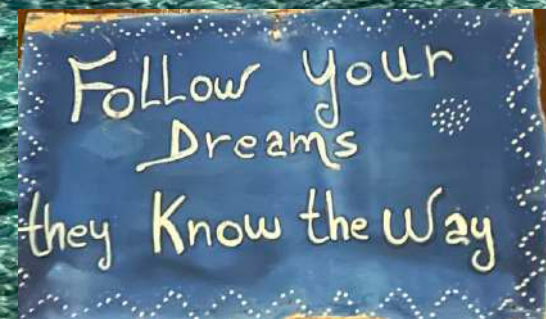 Follow your
Dreams
they Know the Way